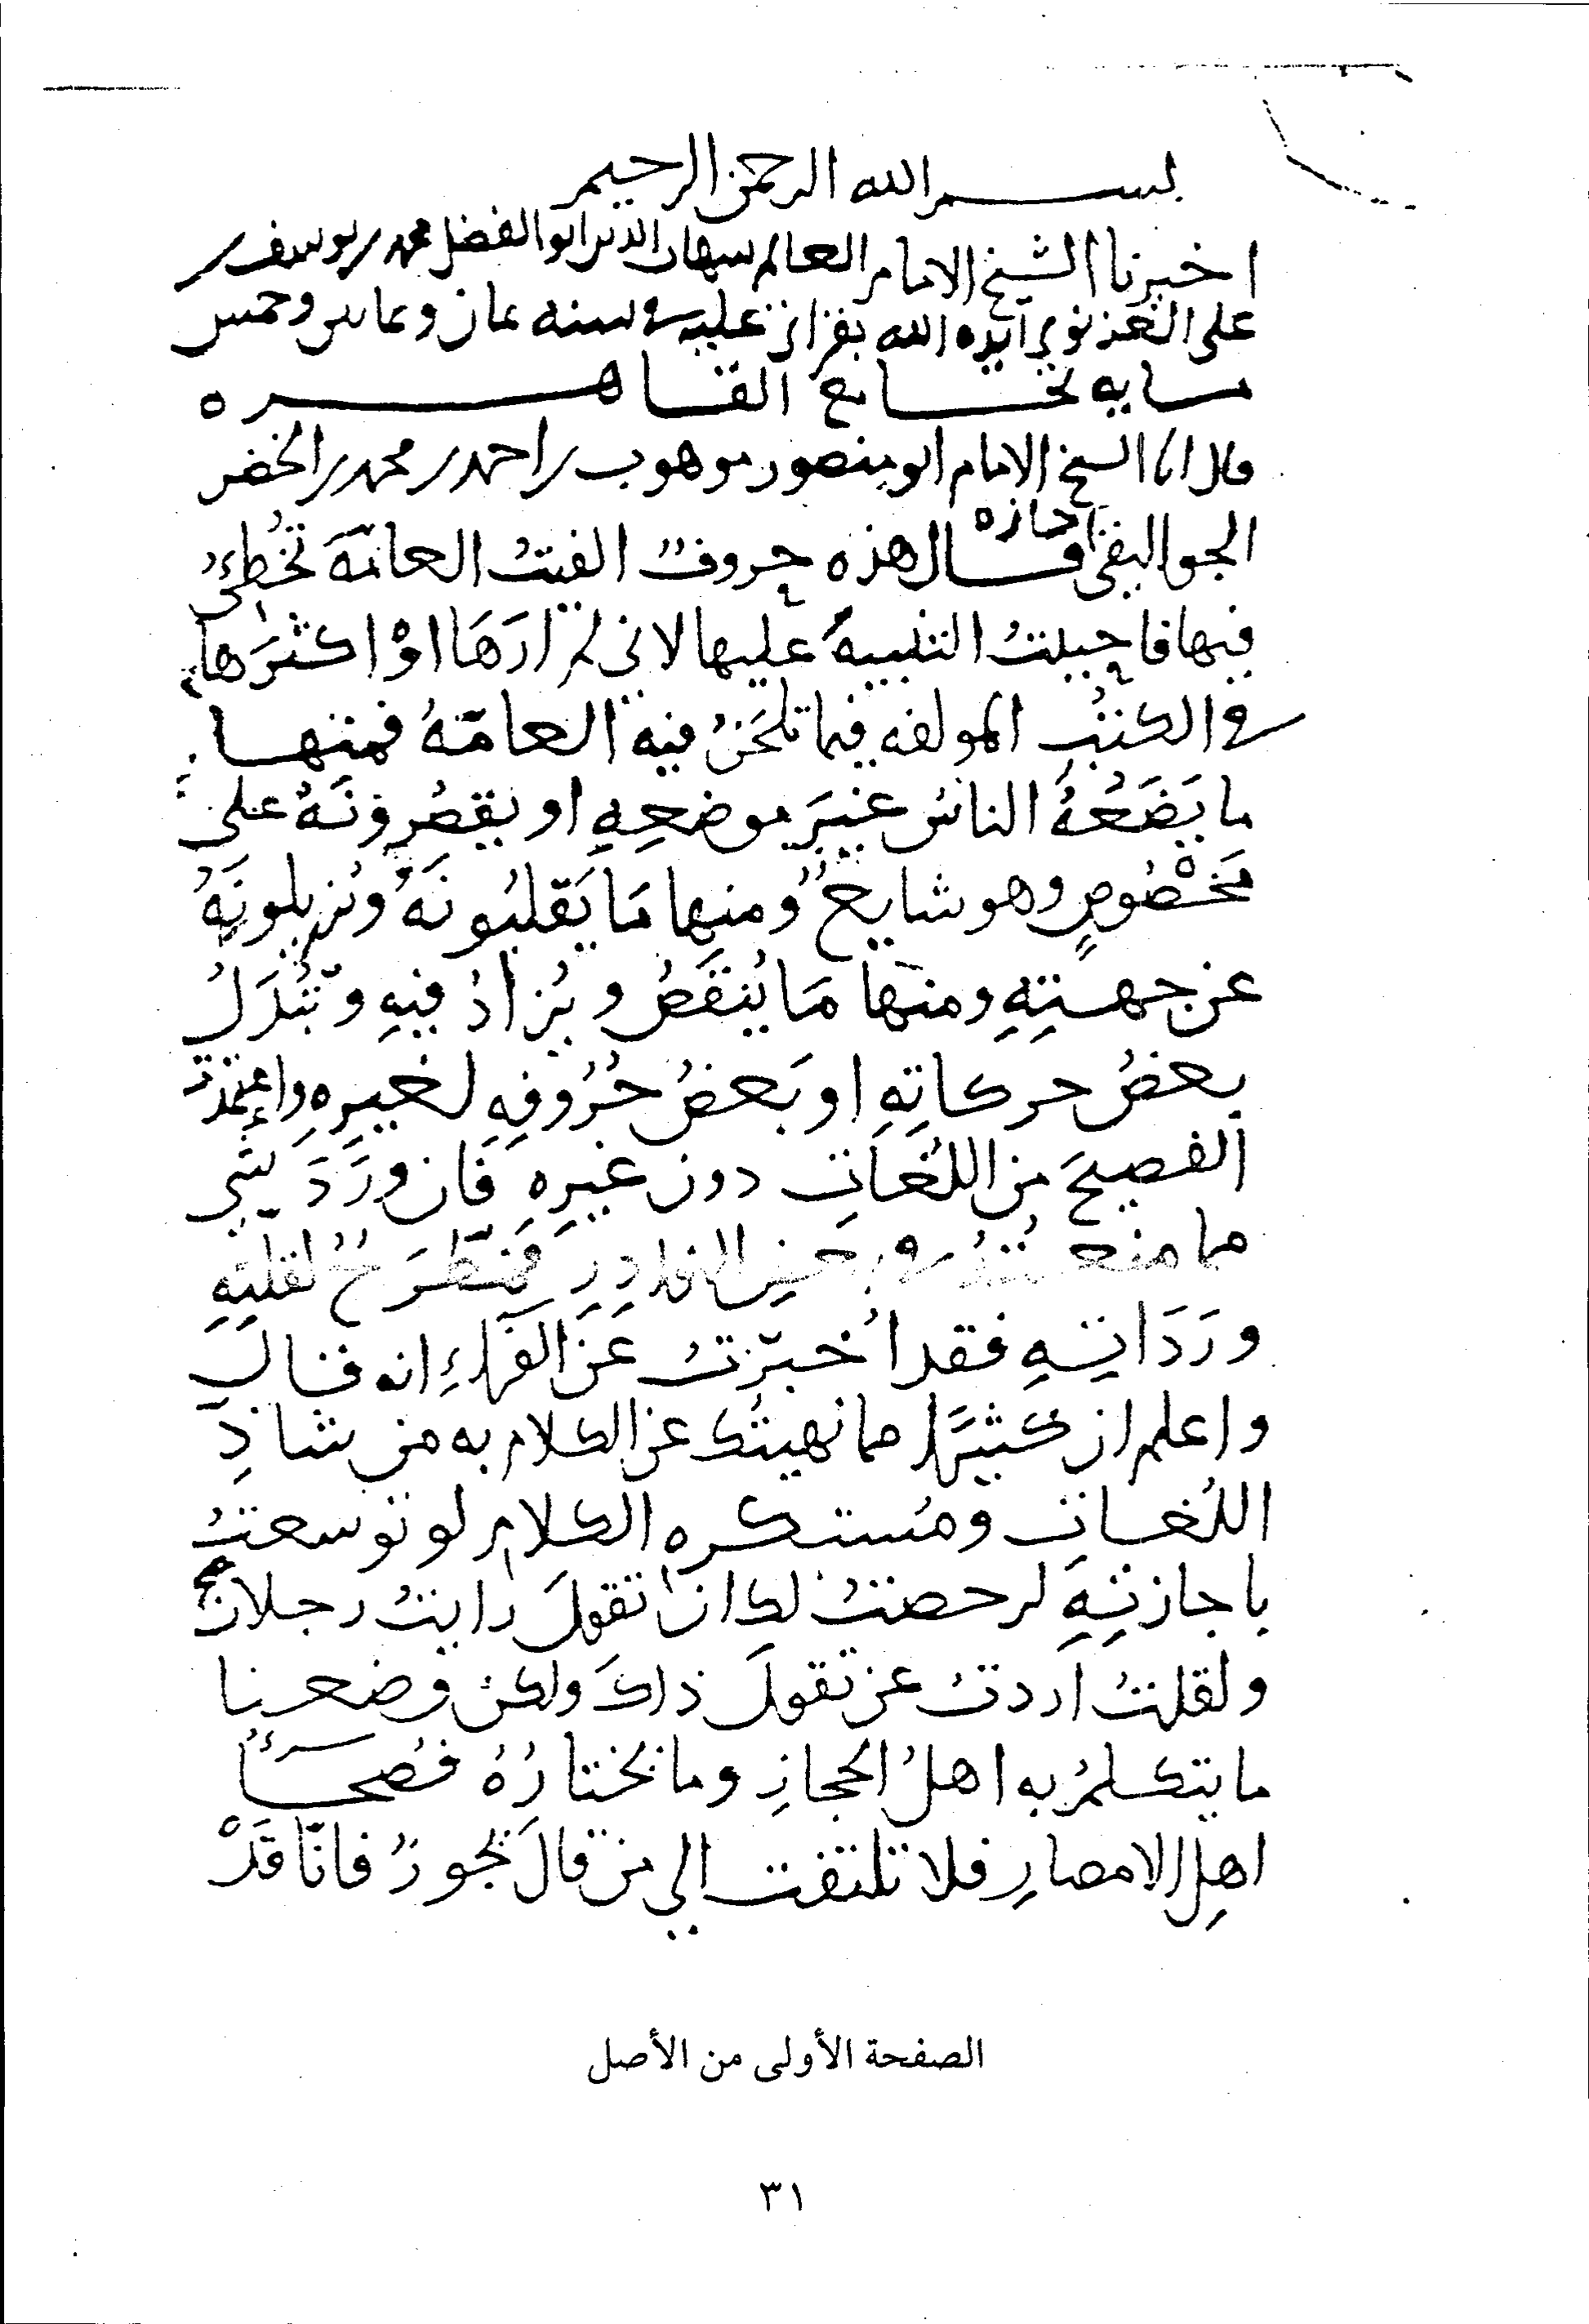 بسم الله الرحمن الرحيم
اخبرنا الشيخ الامام العالم شهاب الدين ابو الفضل محمد بن يوسف بن
على الغزنوي ايده الله بقراتي عليه في سنه ثمان وثمانين وخمس
مايه بجامع القاهره
قال انا الشيخ الامام ابو منصور موهوب بن احمد بن محمد بن الخضر
الجواليقي اجازه قال هذه حروفٌ الفيتُ العامّةَ تُخطِئُ
فيها فاحببتُ التنبيهَ عليها لاني لم ارَهَا اوْ اكثرَها
في الكتبِ المولفه فيما تلحَنُ فيه العامّةُ فمنها
ما يَضَعُهُ الناسُ غيرَ موضعِهِ او يقصُرونَهُ على
مَخْصُوصٍ وهو شايعٌ ومنها مَا يَقلبُونَهُ ويُزيلونَهُ
عن جهتِهِ ومنها مَا يُنقَصُ ويُزادُ فيهِ وتُبْدَلُ
بعضُ حركاتِهِ او بَعضُ حُرُوفِهِ لغيرِهِ واعتمدتُ
الفصيحَ من اللُغاتِ دون غيرِهِ فان ورَدَ شي
مما منعتُه في بعض النوادِرِ فمُطَّرَحٌ لقلتِهِ
ورَدَاتِهِ فقد اُخبِرتُ عَن الفراءِ انه قال
واعلم ان كثيرًا مما نهيتُك عن الكلام به من شاذِ
اللُغاتِ ومُستكره الكلام لو توسعتُ
باجازتِهِ لرخصتُ لك ان تقولَ رايتُ رجلان
ولقلتُ اردتُ عن تقولَ ذاكَ ولكنْ وضعنا
ما يتكلمُ به اهلُ الحجازِ وما يختارُهُ فُصحاءُ
اهلِ الامصارِ فلا تلتفت الى من قالَ يجوزُ فانّا قَدْ
الصفحة الأولى من الأصل
٣١